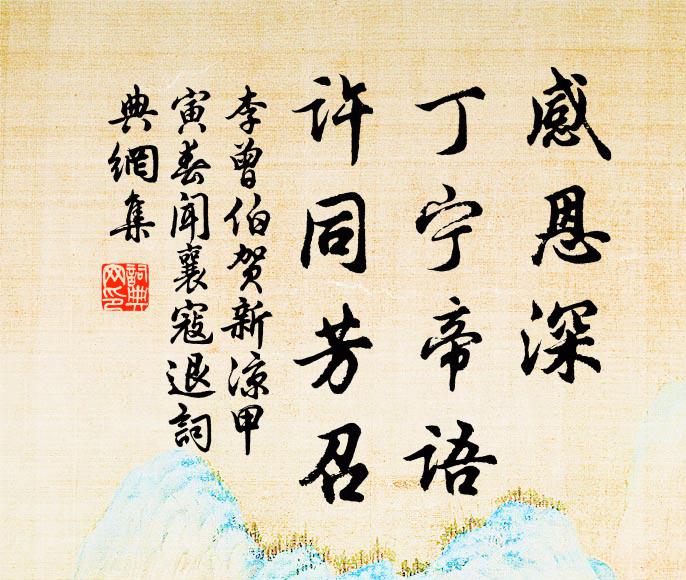 感恩深
丁宁帝语
许同芳召
李曾伯贺新凉甲
寅春闻襄寇退詞
典網集
詞典
网印